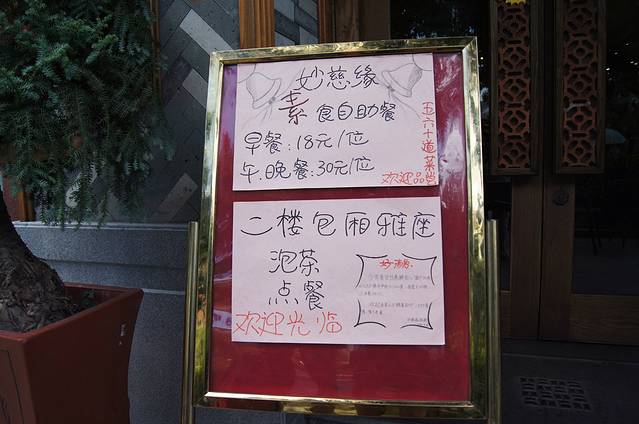 妙慈緣
素食自助餐
早餐:18元/位
午.晚餐:30元/位
五六十道菜
欢迎品尝
二楼包厢雅座
泡茶
点餐
欢迎光临